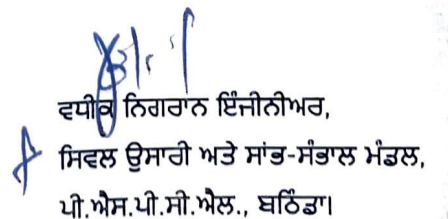 ਵਧੀਕ ਨਿਗਰਾਨ ਇੰਜੀਨੀਅਰ,
ਸਿਵਲ ਉਸਾਰੀ ਅਤੇ ਸਾਂਭ-ਸੰਭਾਲ ਮੰਡਲ,
ਪੀ.ਐਸ.ਪੀ.ਸੀ.ਐਲ., ਬਠਿੰਡਾ।